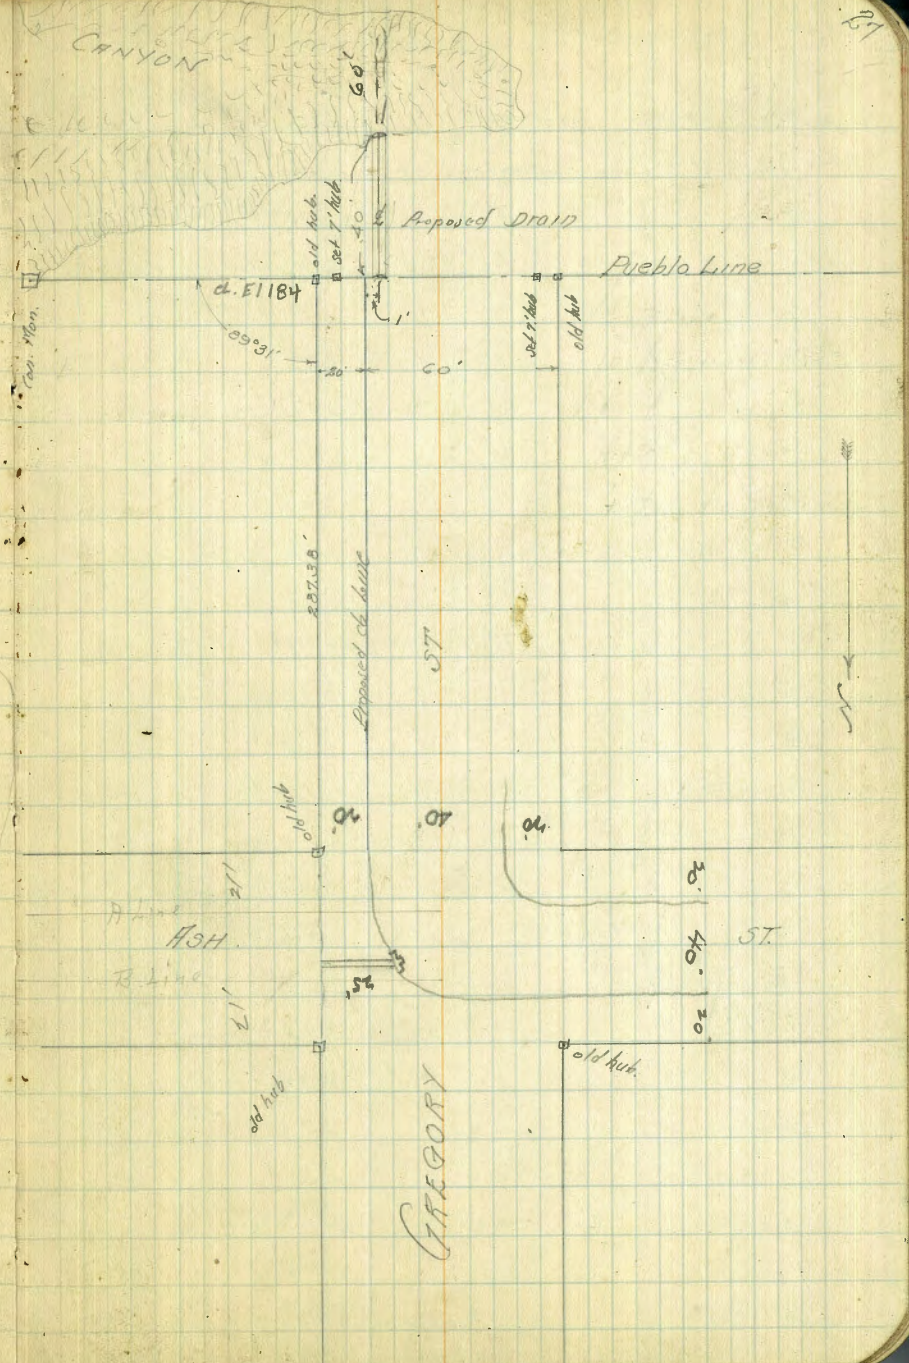 27
CANYON
60'
old hub.
set 7' hub.
40'
Proposed Drain
Pueblo Line
d. E1184
Con. Mon.
1'
set 7' hub
old hub
89°31'
20'
60'
287.38'
Proposed cb Line
ST
N
old hub
20'
40'
20'
21'
20'
A Line
ASH
40'
ST.
B Line
25'
21'
20
old hub
old hub.
GREGORY